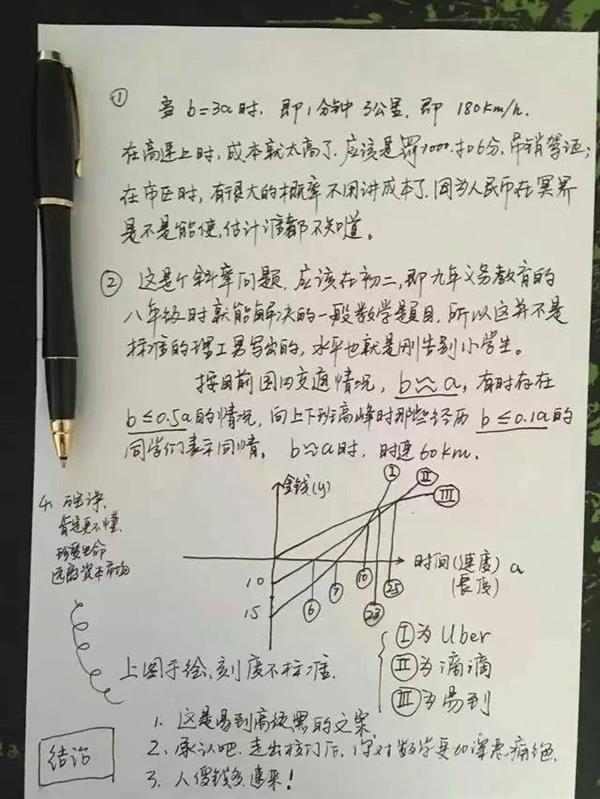 ① 当b=3a时,即1分钟3公里,即180km/h.
在高速上时,成本就太高了.应该是罚2000.扣6分,吊销驾证;
在市区时,有很大的概率不用讲成本了.因为人民币在冥界
是不是能使,估计谁都不知道。
② 这是个斜率问题.应该在初二,即九年义务教育的
八年级时就能解决的一般数学题目.所以这并不是
标准的理工男写出的,水平也就是刚告别小学生。
按目前国内交通情况,b≈a,有时存在
b≤0.5a的情况,向上下班高峰时那些经历b≤0.1a的
同学们表示同情。b≈a时,时速60km.
金钱(y)
Ⅰ
Ⅱ
Ⅲ
时间(速度) a
(长度)
10
15
6
7
10
23
25
4.
肯定更不懂.
珍爱生命
远离资本市场
Ⅰ为Uber
Ⅱ为滴滴
Ⅲ为易到
上图手绘,刻度不标准.
结论
1. 这是易到高级黑的文案.
2. 承认吧.走出校门后,你对数学更加深恶痛绝.
3. 人傻钱多速来!